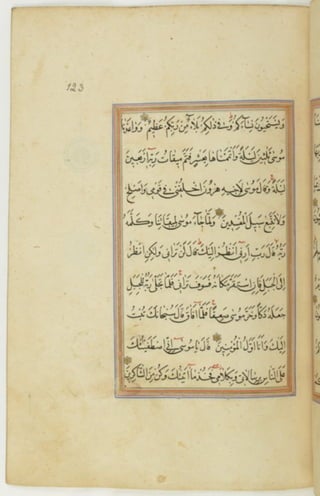 123
وَيَسْتَحْيُونَ نِسَاءَكُمْ وَفِي ذَلِكُمْ بَلَاءٌ مِنْ رَبِّكُمْ عَظِيمٌ وَوَاعَدْنَا
مُوسَى ثَلَثِينَ لَيْلَةً وَأَتْمَمْنَاهَا بِعَشْرٍ فَتَمَّ مِيقَاتُ رَبِّهِ أَرْبَعِينَ
لَيْلَةً وَقَالَ مُوسَى لِأَخِيهِ هَرُونَ اخْلُفْنِي فِي قَوْمِي وَأَصْلِحْ
وَلَا تَتَّبِعْ سَبِيلَ الْمُفْسِدِينَ وَلَمَّا جَاءَ مُوسَى لِمِيقَاتِنَا وَكَلَّمَهُ
رَبُّهُ قَالَ رَبِّ أَرِنِي أَنْظُرْ إِلَيْكَ قَالَ لَنْ تَرَانِي وَلَكِنِ انْظُرْ
إِلَى الْجَبَلِ فَإِنِ اسْتَقَرَّ مَكَانَهُ فَسَوْفَ تَرَانِي فَلَمَّا تَجَلَّى رَبُّهُ لِلْجَبَلِ
جَعَلَهُ دَكًّا وَخَرَّ مُوسَى صَعِقًا فَلَمَّا أَفَاقَ قَالَ سُبْحَانَكَ تُبْتُ
إِلَيْكَ وَأَنَا أَوَّلُ الْمُؤْمِنِينَ قَالَ يَا مُوسَى إِنِّي اصْطَفَيْتُكَ
عَلَى النَّاسِ بِرِسَالَاتِي وَبِكَلَامِي فَخُذْ مَا آتَيْتُكَ وَكُنْ مِنَ الشَّاكِرِينَ